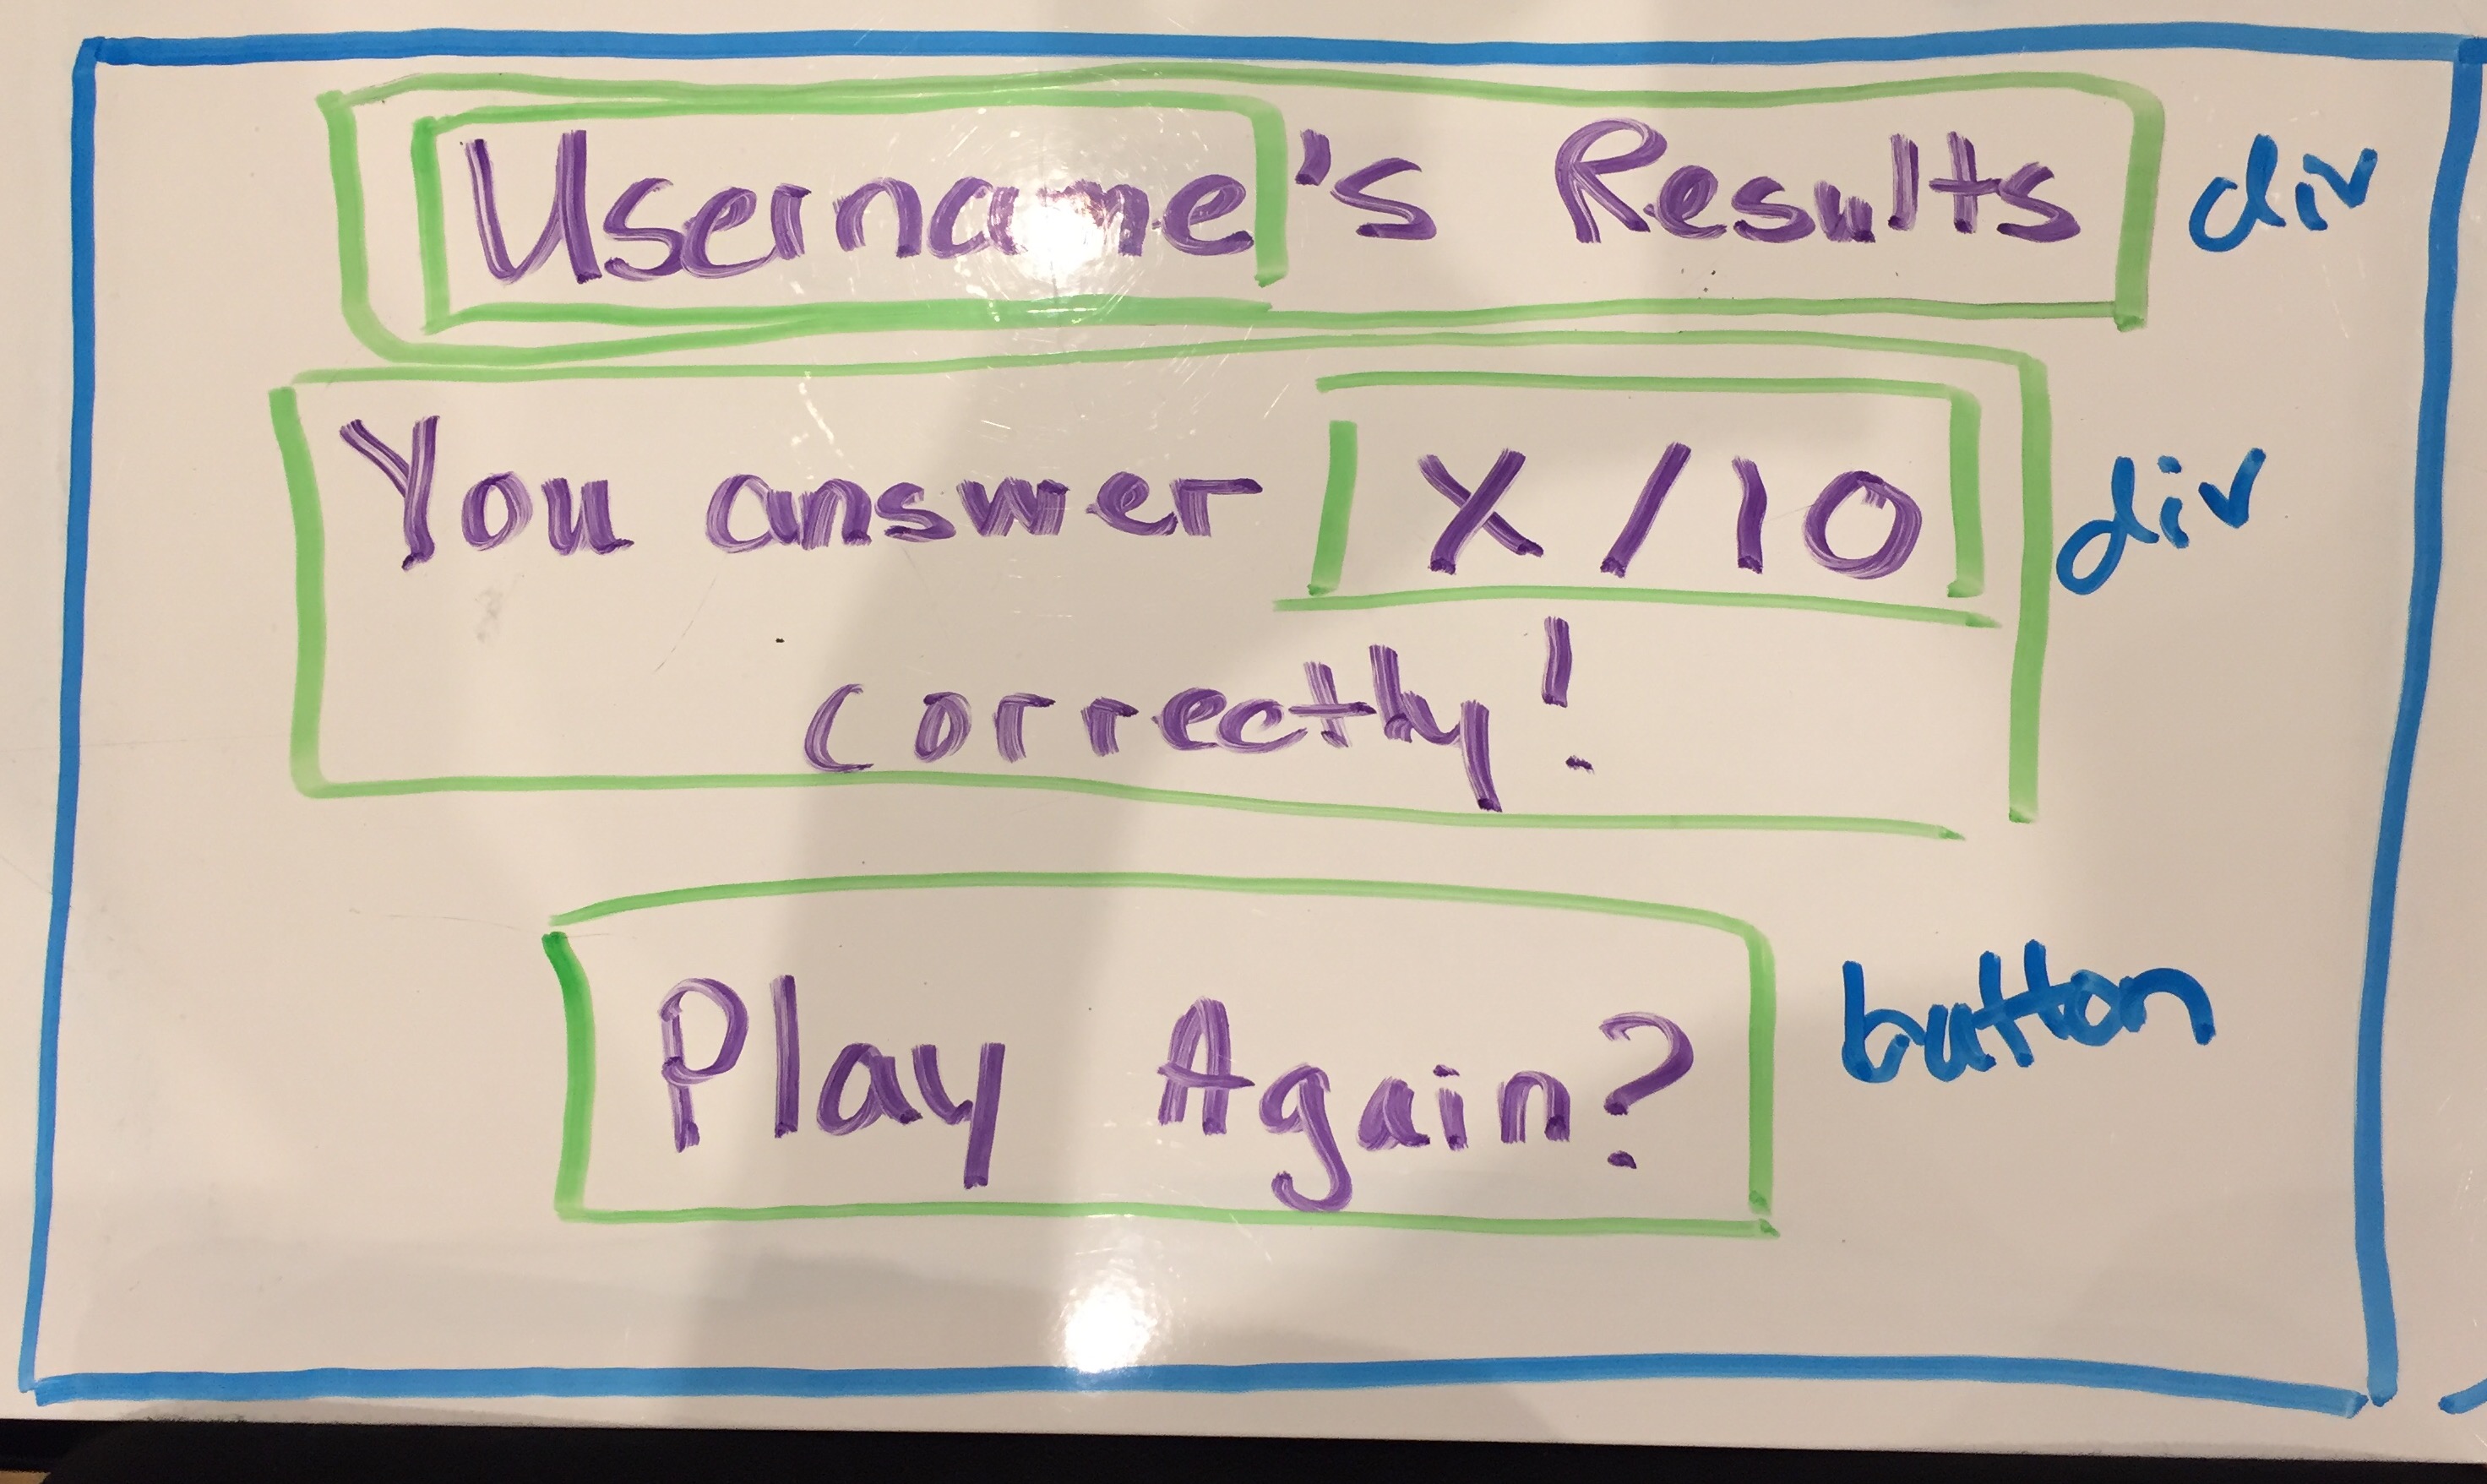 Username's Results div
You answer X/10 div
correctly!
Play Again? button